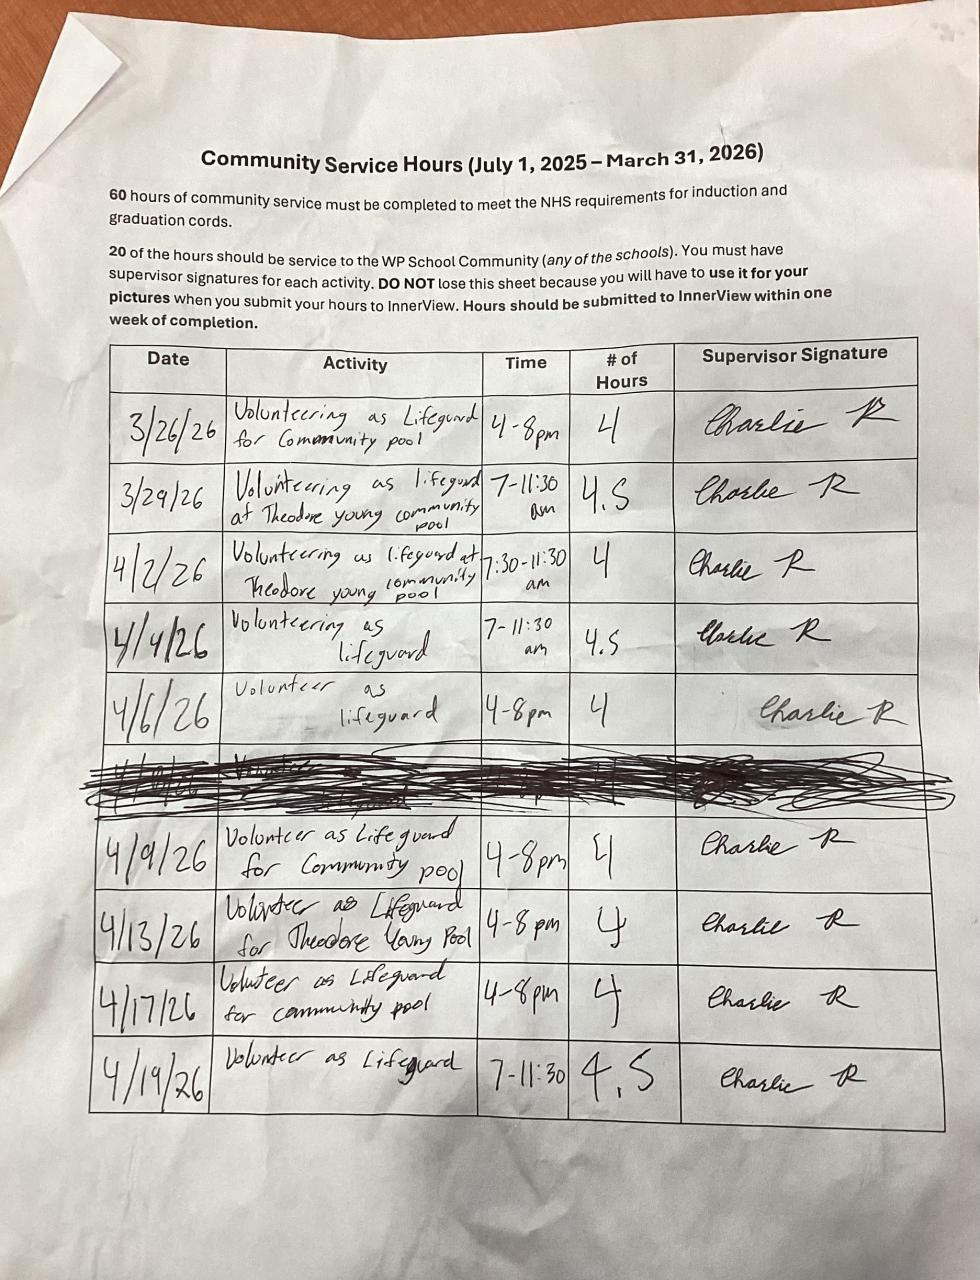 Community Service Hours (July 1, 2025 – March 31, 2026)
60 hours of community service must be completed to meet the NHS requirements for induction and
graduation cords.
20 of the hours should be service to the WP School Community (any of the schools). You must have
supervisor signatures for each activity. DO NOT lose this sheet because you will have to use it for your
pictures when you submit your hours to InnerView. Hours should be submitted to InnerView within one
week of completion.
Date Activity Time # of Supervisor Signature
Hours
3/26/26 Volunteering as Lifeguard 4-8pm 4 Charlie R
for Community pool
3/29/26 Volunteering as lifeguard 7-11:30 4.5 Charlie R
at Theodore young community am
pool
4/2/26 Volunteering as lifeguard at 7:30-11:30 4 Charlie R
Theodore young community am
pool
4/4/26 Volunteering as 7-11:30 4.5 Charlie R
lifeguard am
4/6/26 Volunteer as 4-8pm 4 Charlie R
lifeguard
4/9/26 Volunteer as Lifeguard 4-8pm 4 Charlie R
for Community pool
4/13/26 Volunteer as Lifeguard 4-8pm 4 Charlie R
for Theodore Young Pool
4/17/26 Voluteer as Lifeguard 4-8pm 4 Charlie R
for community pool
4/19/26 Volunteer as Lifeguard 7-11:30 4.5 Charlie R